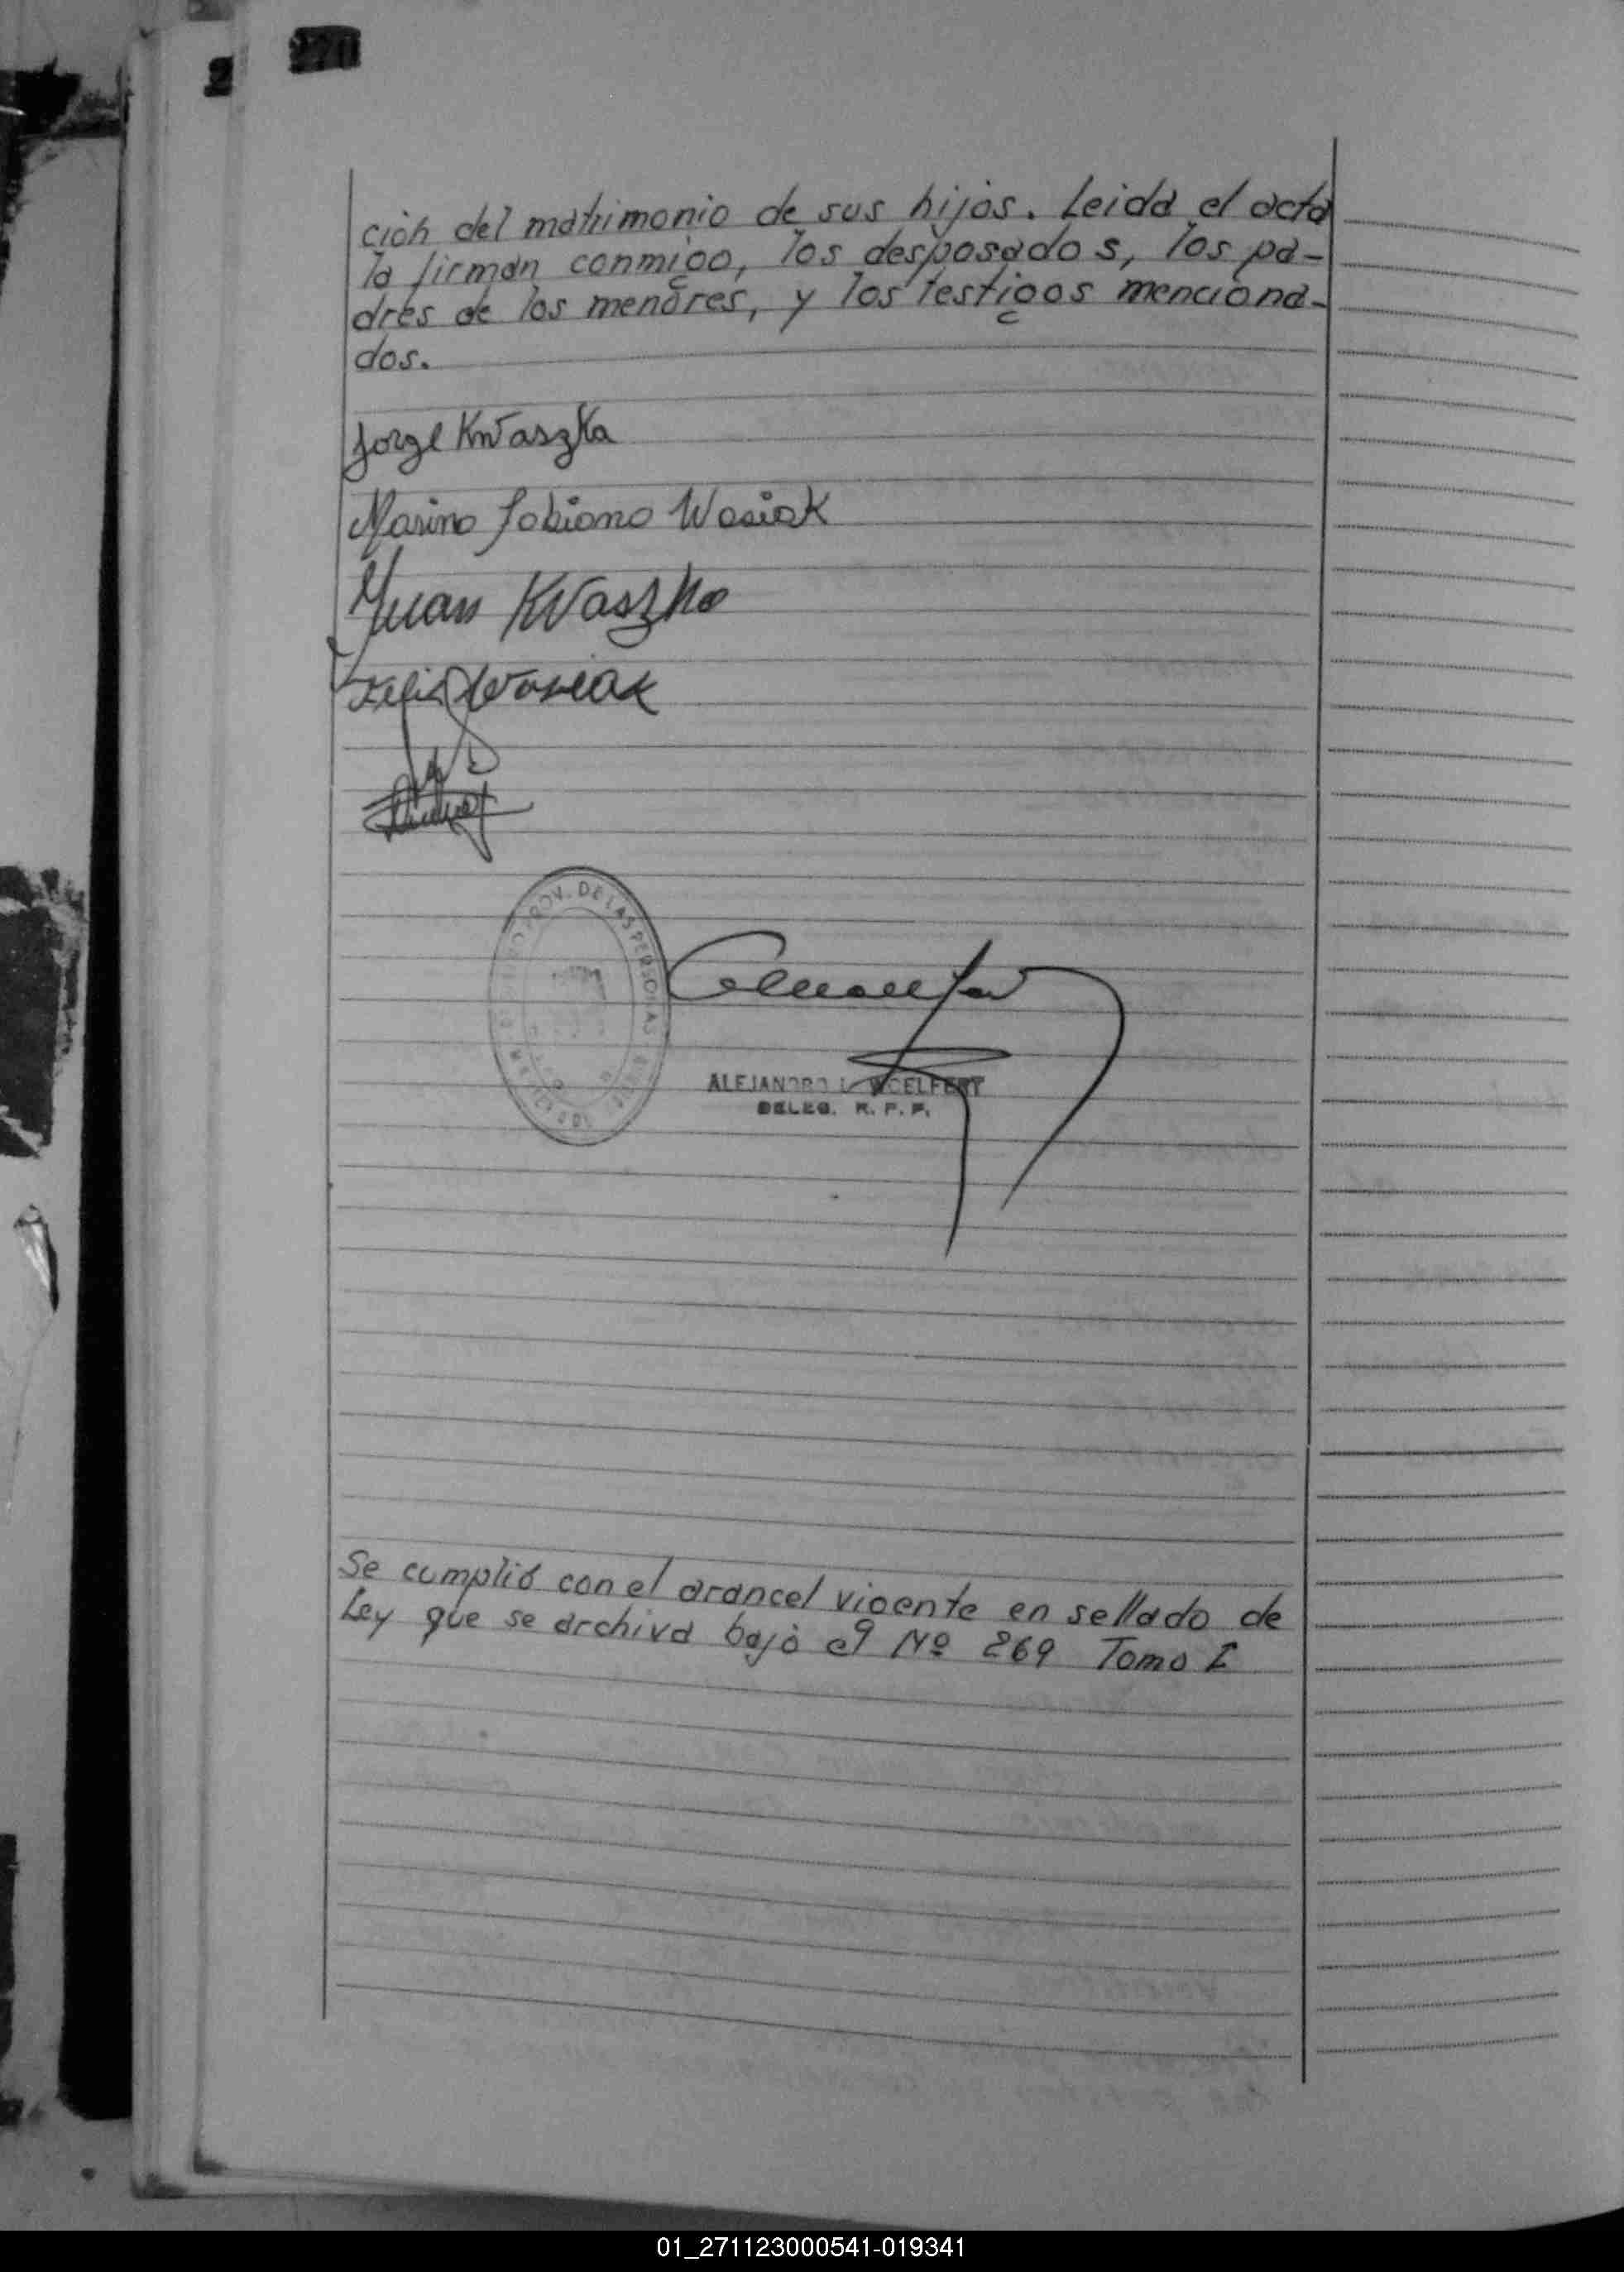 270
ción del matrimonio de sus hijos. Leida el acta
la firman conmigo, los desposados, los pa-
dres de los menores, y los testigos menciona-
dos.
Jorge Kwaszka
Marina Fabiana Wasiak
Juan Kvaszka
Felix Wasiak
PROV. DE LAS PERSONAS
ALEJANDRO
DELEG. R. P. P.
Se cumplió con el arancel vigente en sellado de
Ley que se archiva bajo el Nº 269 Tomo I
01_271123000541-019341